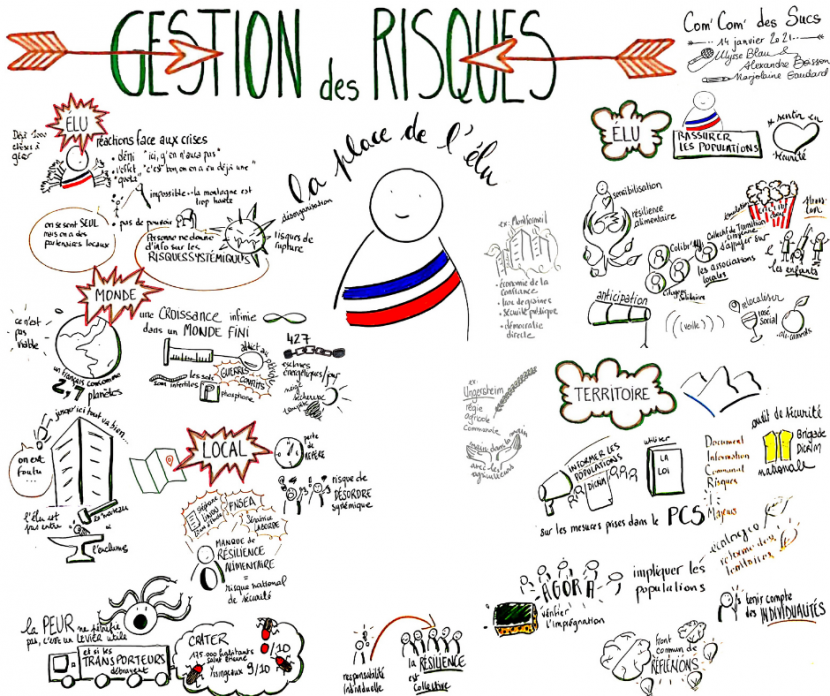 GESTION des RISQUES
Com' Com' des Sucs
14 janvier 2021
Ulysse Blau &
Alexandre Boisson
Marjolaine Gaudard
la place de l'élu
Déjà 1000
choses à
gérer
ÉLU
réactions face aux crises
• déni "ici, y'en aura pas"
• l'effet "c'est bon on en a eu déjà une"
quota
impossible.. la montagne est
trop haute
• pas de pouvoir
on se sent SEUL
mais on a des
partenaires locaux
Personne ne donne
d'info sur les
RISQUES SYSTÉMIQUES
désorganisation
risques de
rupture
MONDE
ce n'est
pas
viable
un français consomme
2,7
planètes
une CROISSANCE infinie
dans un MONDE FINI
addict au
pétrole
les sols
sont infertiles
P
phosphore
GUERRES
CONFLITS
427
esclaves
énergétiques/jour
neige
sécheresse
tempête
jusqu'ici tout va bien...
on est
foutu...
l'élu est
pas entre
le marteau
& l'enclume
LOCAL
perte
de
REPÈRE
risque de
DÉSORDRE
systémique
Stéphane
LINOU
FNSEA
Bératrice
LABORDE
MANQUE de
RÉSILIENCE
ALIMENTAIRE
=
risque national
de sécurité
la PEUR ne débouche
pas, c'est un LEVIER utile
et si les
TRANSPORTEURS
débrayent
CRATER
175 000 habitants
Saint Étienne
/10
Yssingeaux 9/10
responsabilité
individuelle
la RÉSILIENCE
est
collective
ex: Montfermeil
• économie de la
confiance
• bac de graines
• sécurité publique
• démocratie
directe
ex:
Ungersheim
régie
agricole
communale
main dans la main
avec les
agriculteurs
ÉLU
RASSURER
LES POPULATIONS
se sentir en
sécurité
sensibilisation
résilience
alimentaire
Colibris
Citoyens
Solidaire
Collectif de Transition
citoyenne
s'appuyer sur
les associations
locales
& les enfants
anticipation
((veille))
relocaliser
rosé
social
TERRITOIRE
INFORMER LES
POPULATIONS
DICRIM
utiliser
LA
LOI
Document
Information
Communal
Risques
Majeurs
outil de sécurité
Brigade
DICRIM
nationale
sur les mesures prises dans le PCS
AGORA
vérifier
l'imprégnation
impliquer les
populations
tenir compte
des INDIVIDUALITÉS
front
commun de
RÉFLÉXIONS